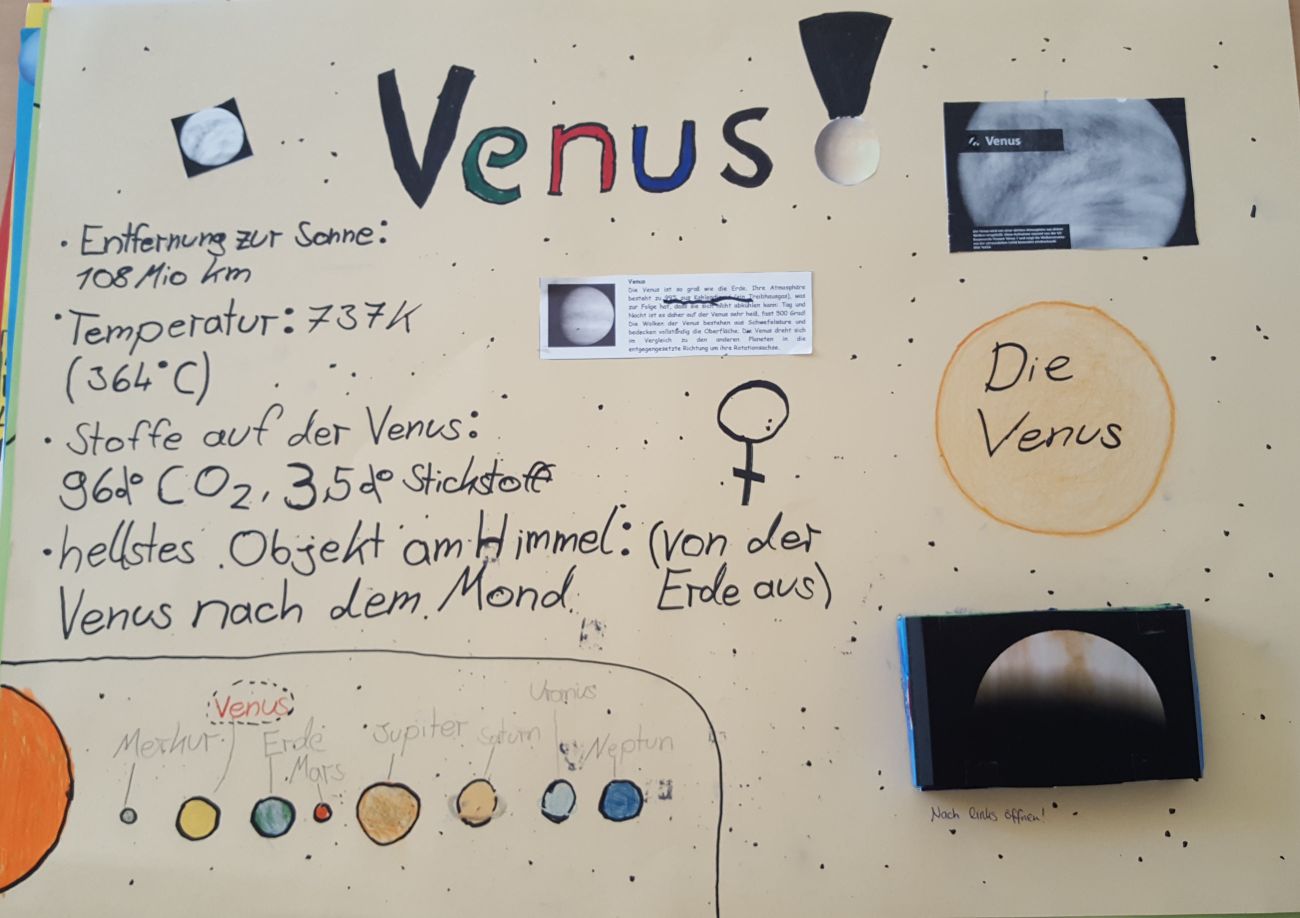 Venus!
• Entfernung zur Sonne:
108 Mio km
• Temperatur: 737K
(364°C)
• Stoffe auf der Venus:
96% CO2, 3,5% Stickstoff
• hellstes Objekt am Himmel: (von der
Venus nach dem Mond Erde aus)
Venus
Die Venus ist so groß wie die Erde. Ihre Atmosphäre
besteht zu (ein Treibhausgas), was
zur Folge hat, dass sie sich nicht abkühlen kann: Tag und
Nacht ist es daher auf der Venus sehr heiß, fast 500 Grad!
Die Wolken der Venus bestehen aus Schwefelsäure und
bedecken vollständig die Oberfläche. Die Venus dreht sich
im Vergleich zu den anderen Planeten in die
entgegengesetzte Richtung um ihre Rotationsachse.
Venus
Die
Venus
Nach links öffnen!
Merkur
Venus
Erde
Mars
Jupiter
Saturn
Uranus
Neptun